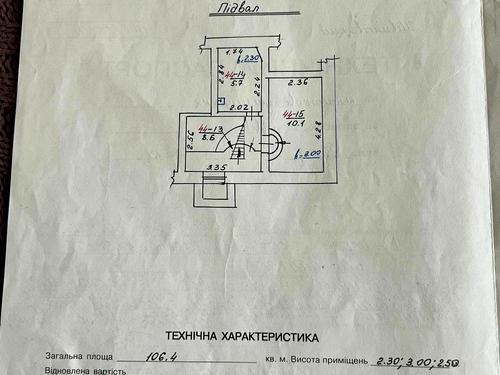 Підвал
1.74
h=2.30
2.84
44-14
5.7
2.24
2.36
2.02
44-15
10.1
44-13
8.6
2.56
4.28
h=2.00
3.35
ТЕХНІЧНА ХАРАКТЕРИСТИКА
Загальна площа 106.4 кв. м. Висота приміщень 2.30; 3.00; 2.50
Відновлена вартість